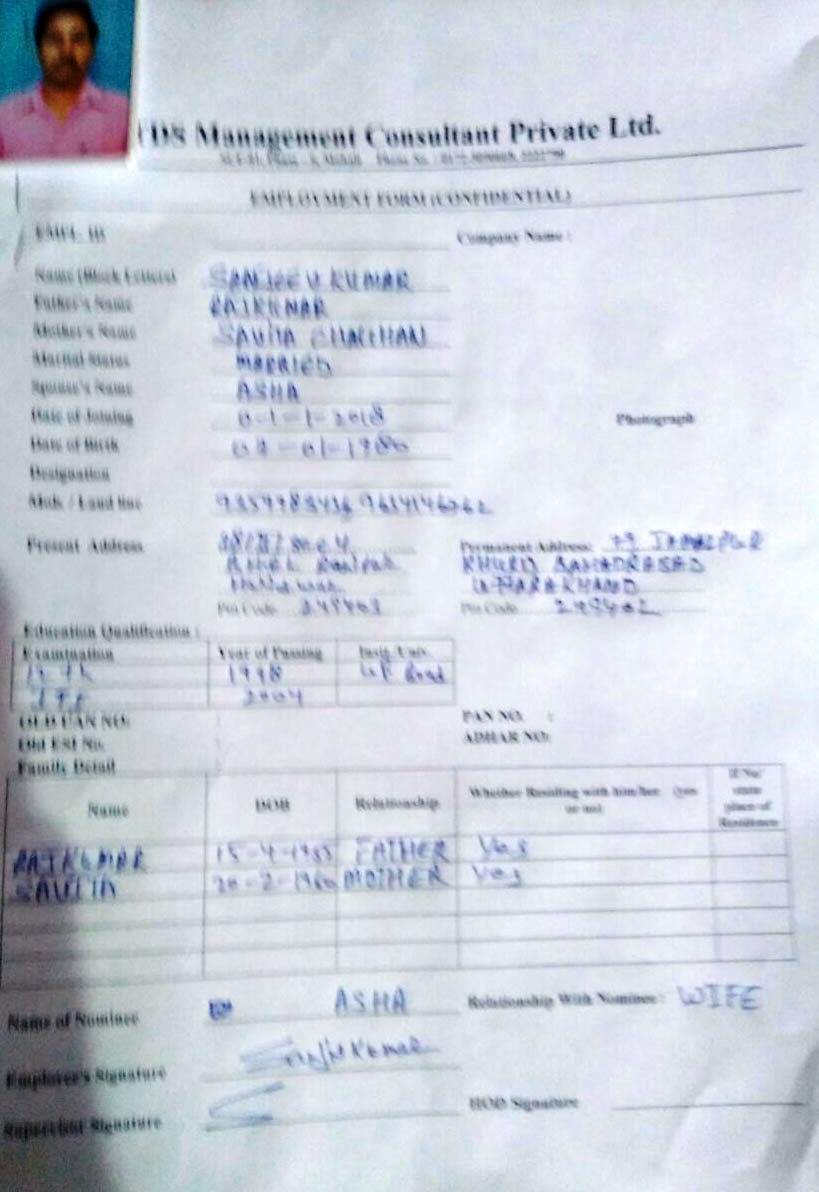 TDS Management Consultant Private Ltd.
EMPLOYMENT FORM (CONFIDENTIAL)
EMPL. ID Company Name :
Name (Block Letters) SANJEEV KUMAR
Father's Name RAJKUMAR
Mother's Name SAVITA CHAUHAN
Marital Status MARRIED
Spouse's Name ASHA
Date of Joining 0-1-1-2018
Date of Birth -01-1980
Photograph
Designation
Mob. / Land line
Present Address Permanent Address: 79 JAMALPUR
KHURD BAHADRABAD
Haridwar UTTARAKHAND
Pin Code 249403 Pin Code 249402
Education Qualification :
Examination Year of Passing Instt./Univ.
1998 UP Board
ITI 2004
OLD UAN NO: PAN NO. :
Old ESI No. ADHAR NO:
Family Detail
Name DOB Relationship Whether Residing with him/her (yes or no) If No/ state place of Residence
RAJKUMAR 15-4-1955 FATHER Yes
SAVITA 20-2-1960 MOTHER Yes
Name of Nominee ASHA Relationship With Nominee : WIFE
Employee's Signature Sanjeev Kumar
Supervisor Signature HOD Signature